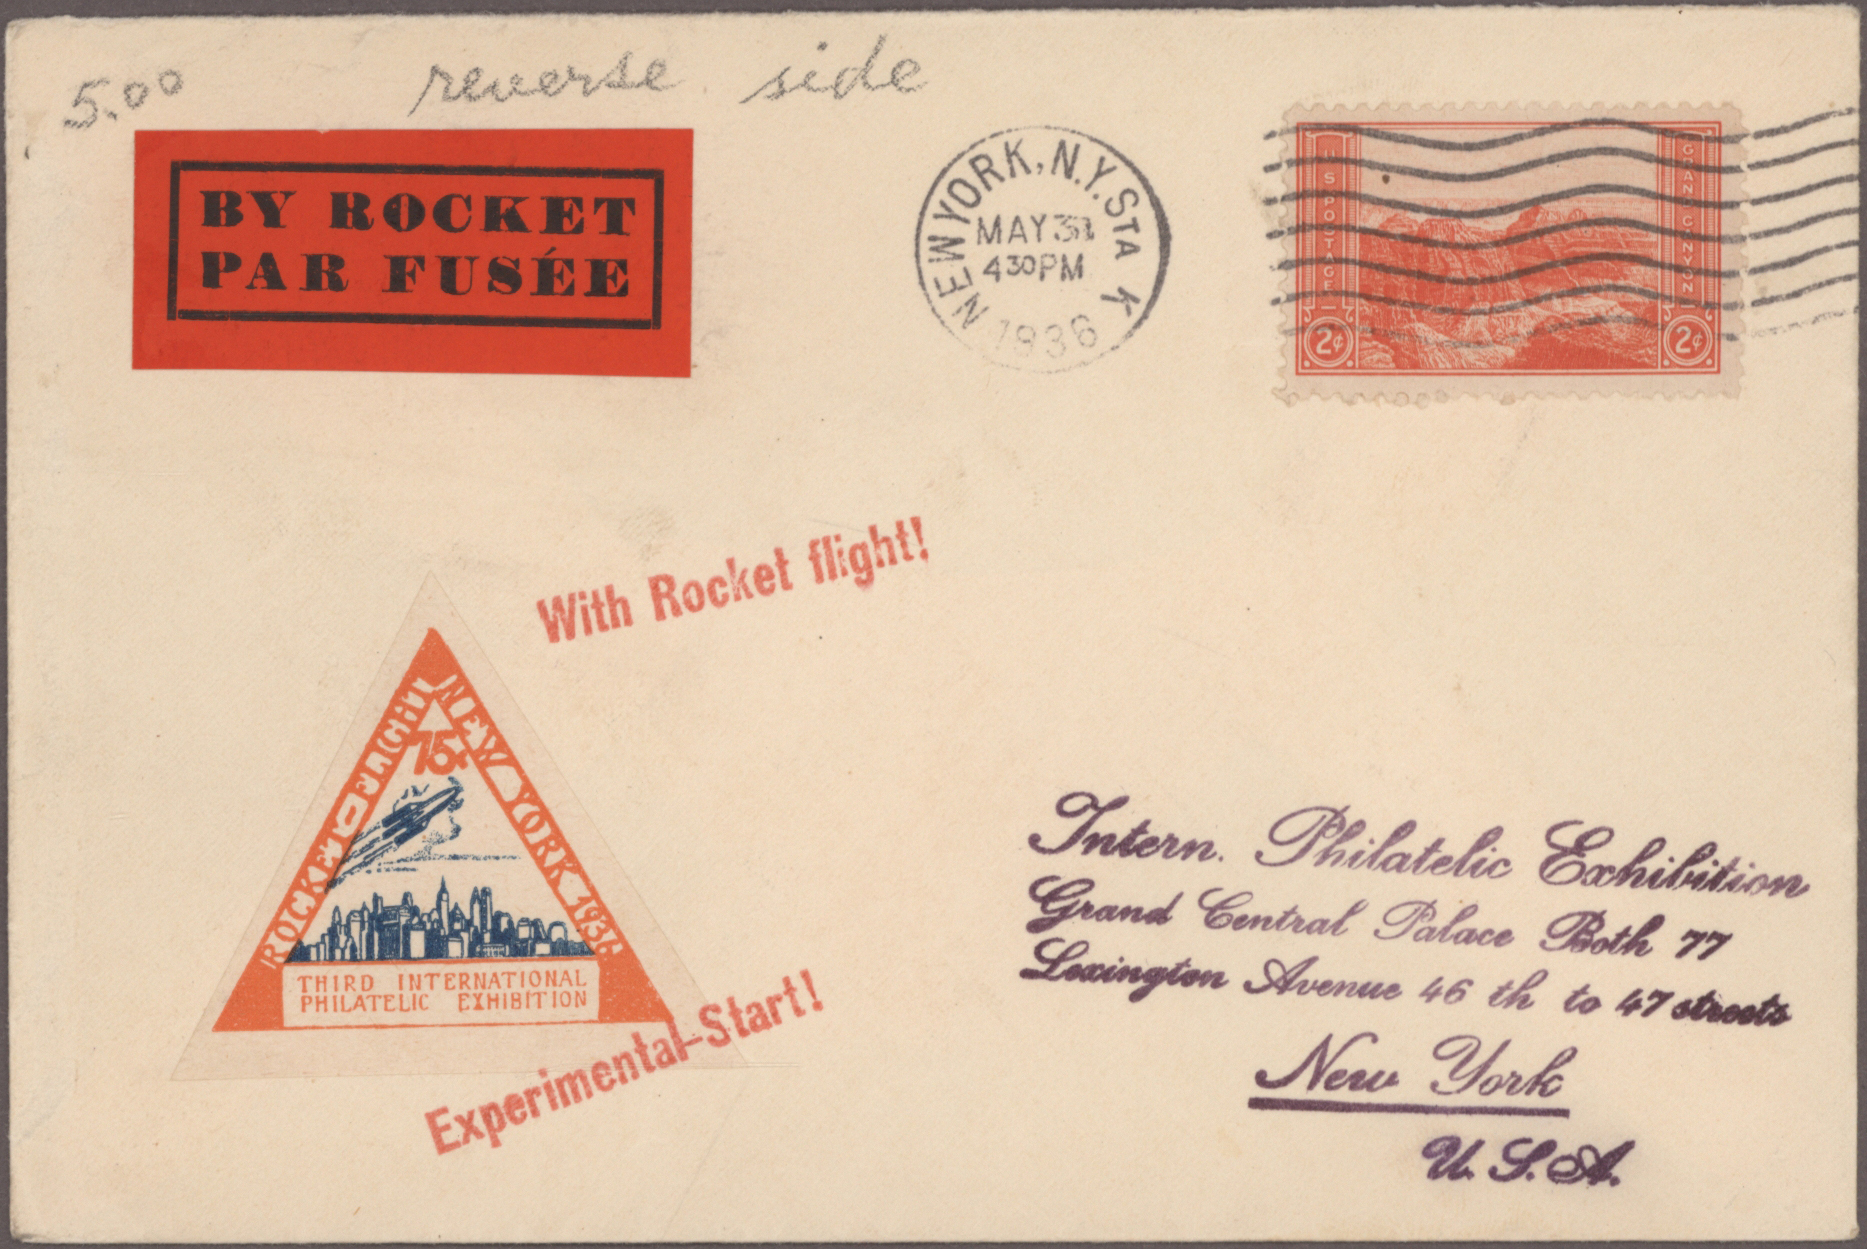 5.00 reverse side
BY ROCKET
PAR FUSÉE
NEW YORK, N.Y. STA K
MAY 31
4 30 PM
1936
U S POSTAGE
GRAND CANYON
2¢ 2¢
With Rocket flight!
ROCKET-FLIGHT
NEW YORK 1936
75c
THIRD INTERNATIONAL
PHILATELIC EXHIBITION
Experimental-Start!
Intern. Philatelic Exhibition
Grand Central Palace Both 77
Lexington Avenue 46 th to 47 streets
New York
U. S. A.